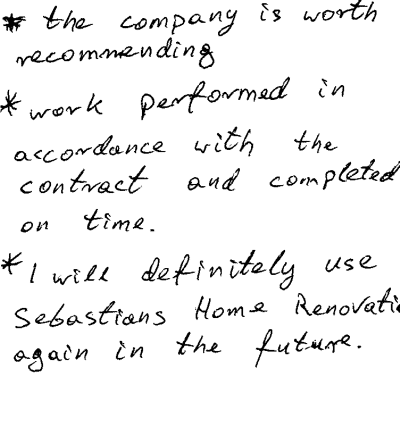 * the company is worth
recommending
* work performed in
accordance with the
contract and completed
on time.
* I will definitely use
Sebastians Home Renovati
again in the future.